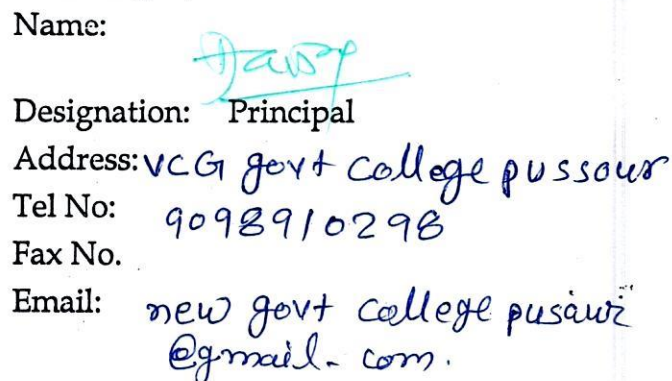 Name:
Designation: Principal
Address: VCG govt college pussour
Tel No: 9098910298
Fax No.
Email: new govt college pusawr
@gmail. com.